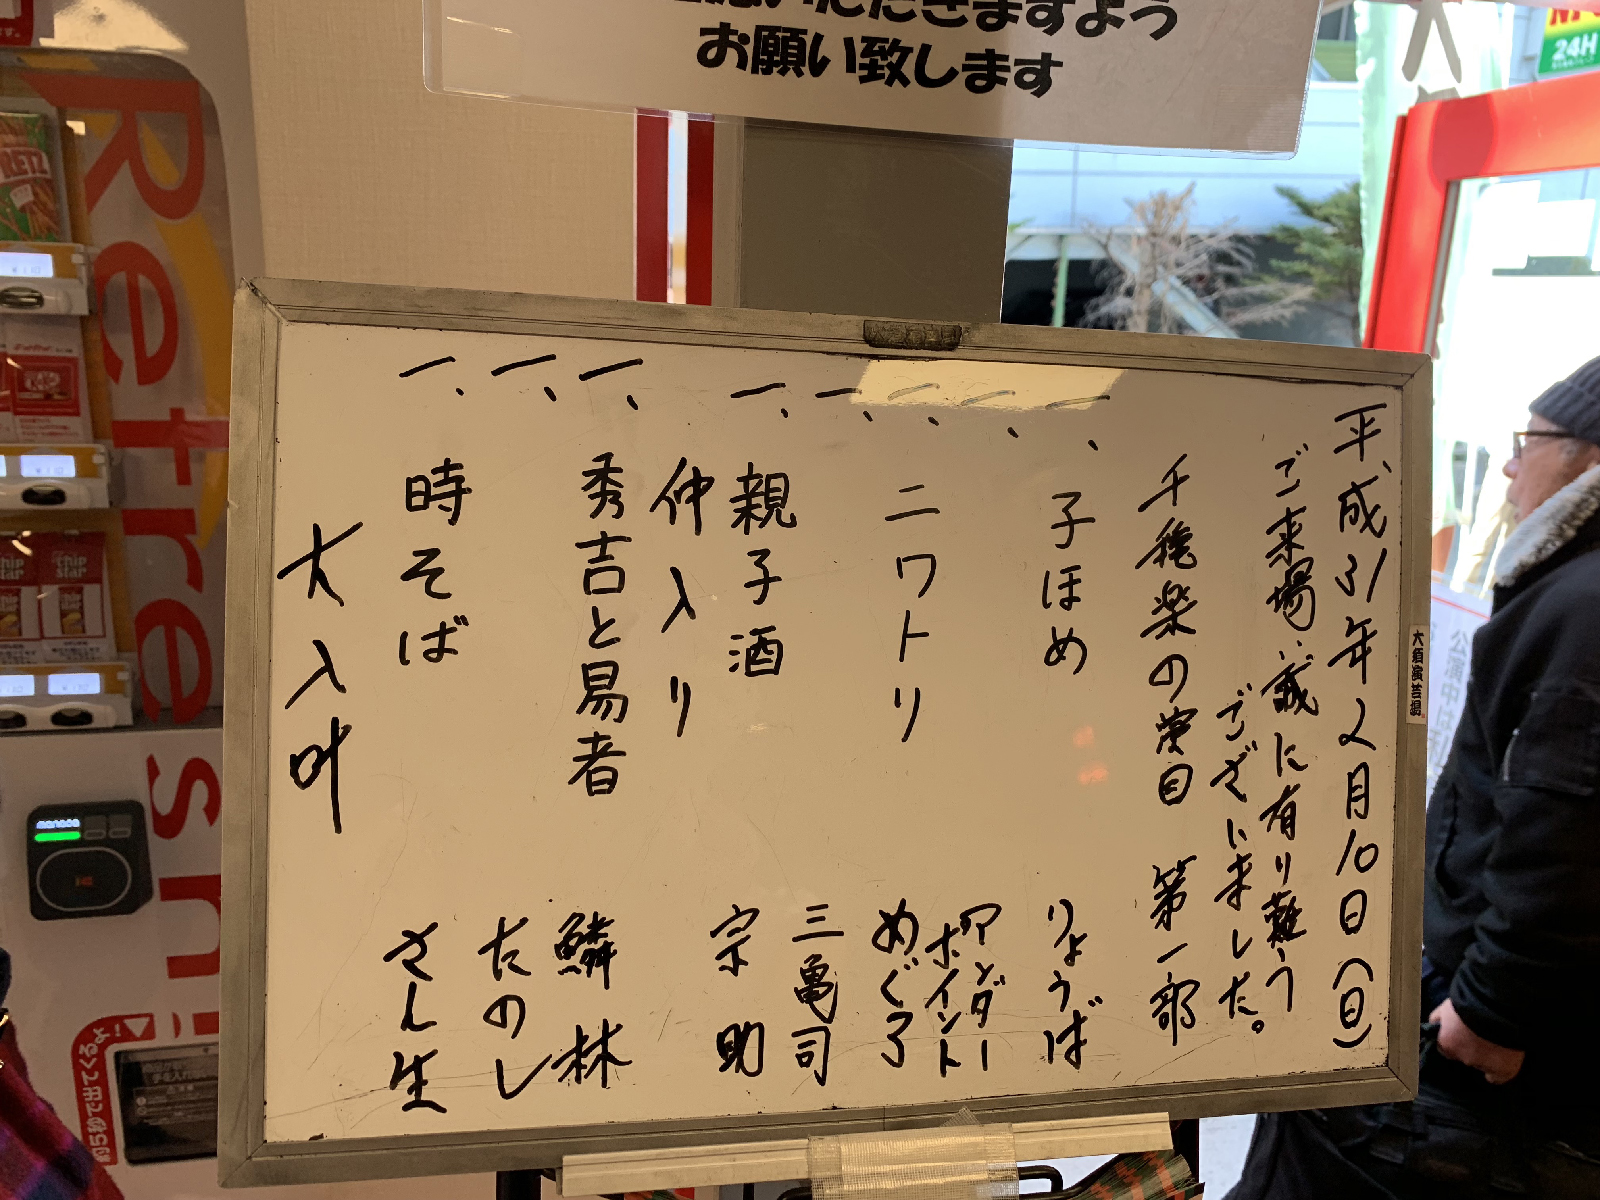 お願い致します
平成31年2月10日(日)
ご来場、誠に有り難う
ございました。
千穐楽の演目 第一部
一、子ほめ りょうば
一、アンダーポイント
一、ニワトリ めぐろ
一、三亀司
一、親子酒 宗助
仲入り
一、秀吉と易者 鱗林
一、たのし
一、時そば さん生
大入叶
大須演芸場
公演中は
Refreshi
manaca
chip star
chip star
24H